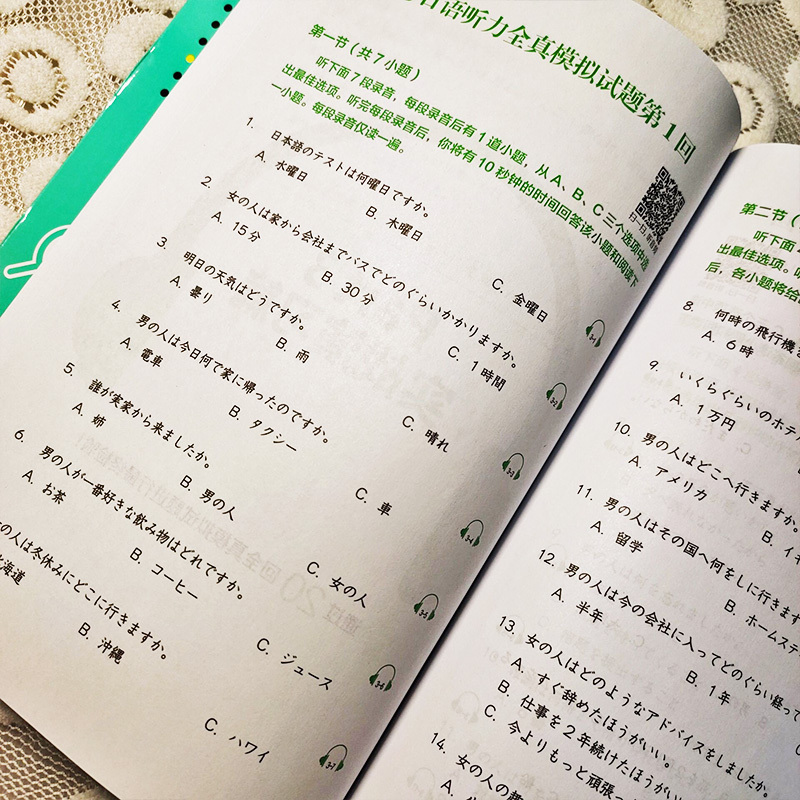 日语听力全真模拟试题第1回
第一节（共7小题）
听下面7段录音，每段录音后有1道小题，从A、B、C三个选项中选
出最佳选项。听完每段录音后，你将有10秒钟的时间回答该小题和阅读下
一小题。每段录音仅读一遍。
扫一扫 听音频
1. 日本語のテストは何曜日ですか。
A. 水曜日 B. 木曜日 C. 金曜日
2. 女の人は家から会社までバスでどのぐらいかかりますか。
A. 15分 B. 30分 C. 1時間
3. 明日の天気はどうですか。
A. 曇り B. 雨 C. 晴れ
4. 男の人は今日何で家に帰ったのですか。
A. 電車 B. タクシー C. 車
5. 誰が実家から来ましたか。
A. 姉 B. 男の人 C. 女の人
6. 男の人が一番好きな飲み物はどれですか。
A. お茶 B. コーヒー C. ジュース
の人は冬休みにどこに行きますか。
北海道 B. 沖縄 C. ハワイ
3-1
3-2
3-3
3-4
3-5
3-6
3-7
第二节（
听下面
出最佳选项。听
后，各小题将给
8. 何時の飛行機
A. 6時
9. いくらぐらいのホテル
A. 1万円
10. 男の人はどこへ行きますか。
A. アメリカ B. イギ
11. 男の人はその国へ何をしに行きます
A. 留学 B. ホームステ
12. 男の人は今の会社に入ってどのぐらい経って
A. 半年 B. 1年
13. 女の人はどのようなアドバイスをしましたか。
A. すぐ辞めたほうがいい。
B. 仕事を2年続けたほうがい
C. 今よりもっと頑張っ
14. 女の人の趣
A.